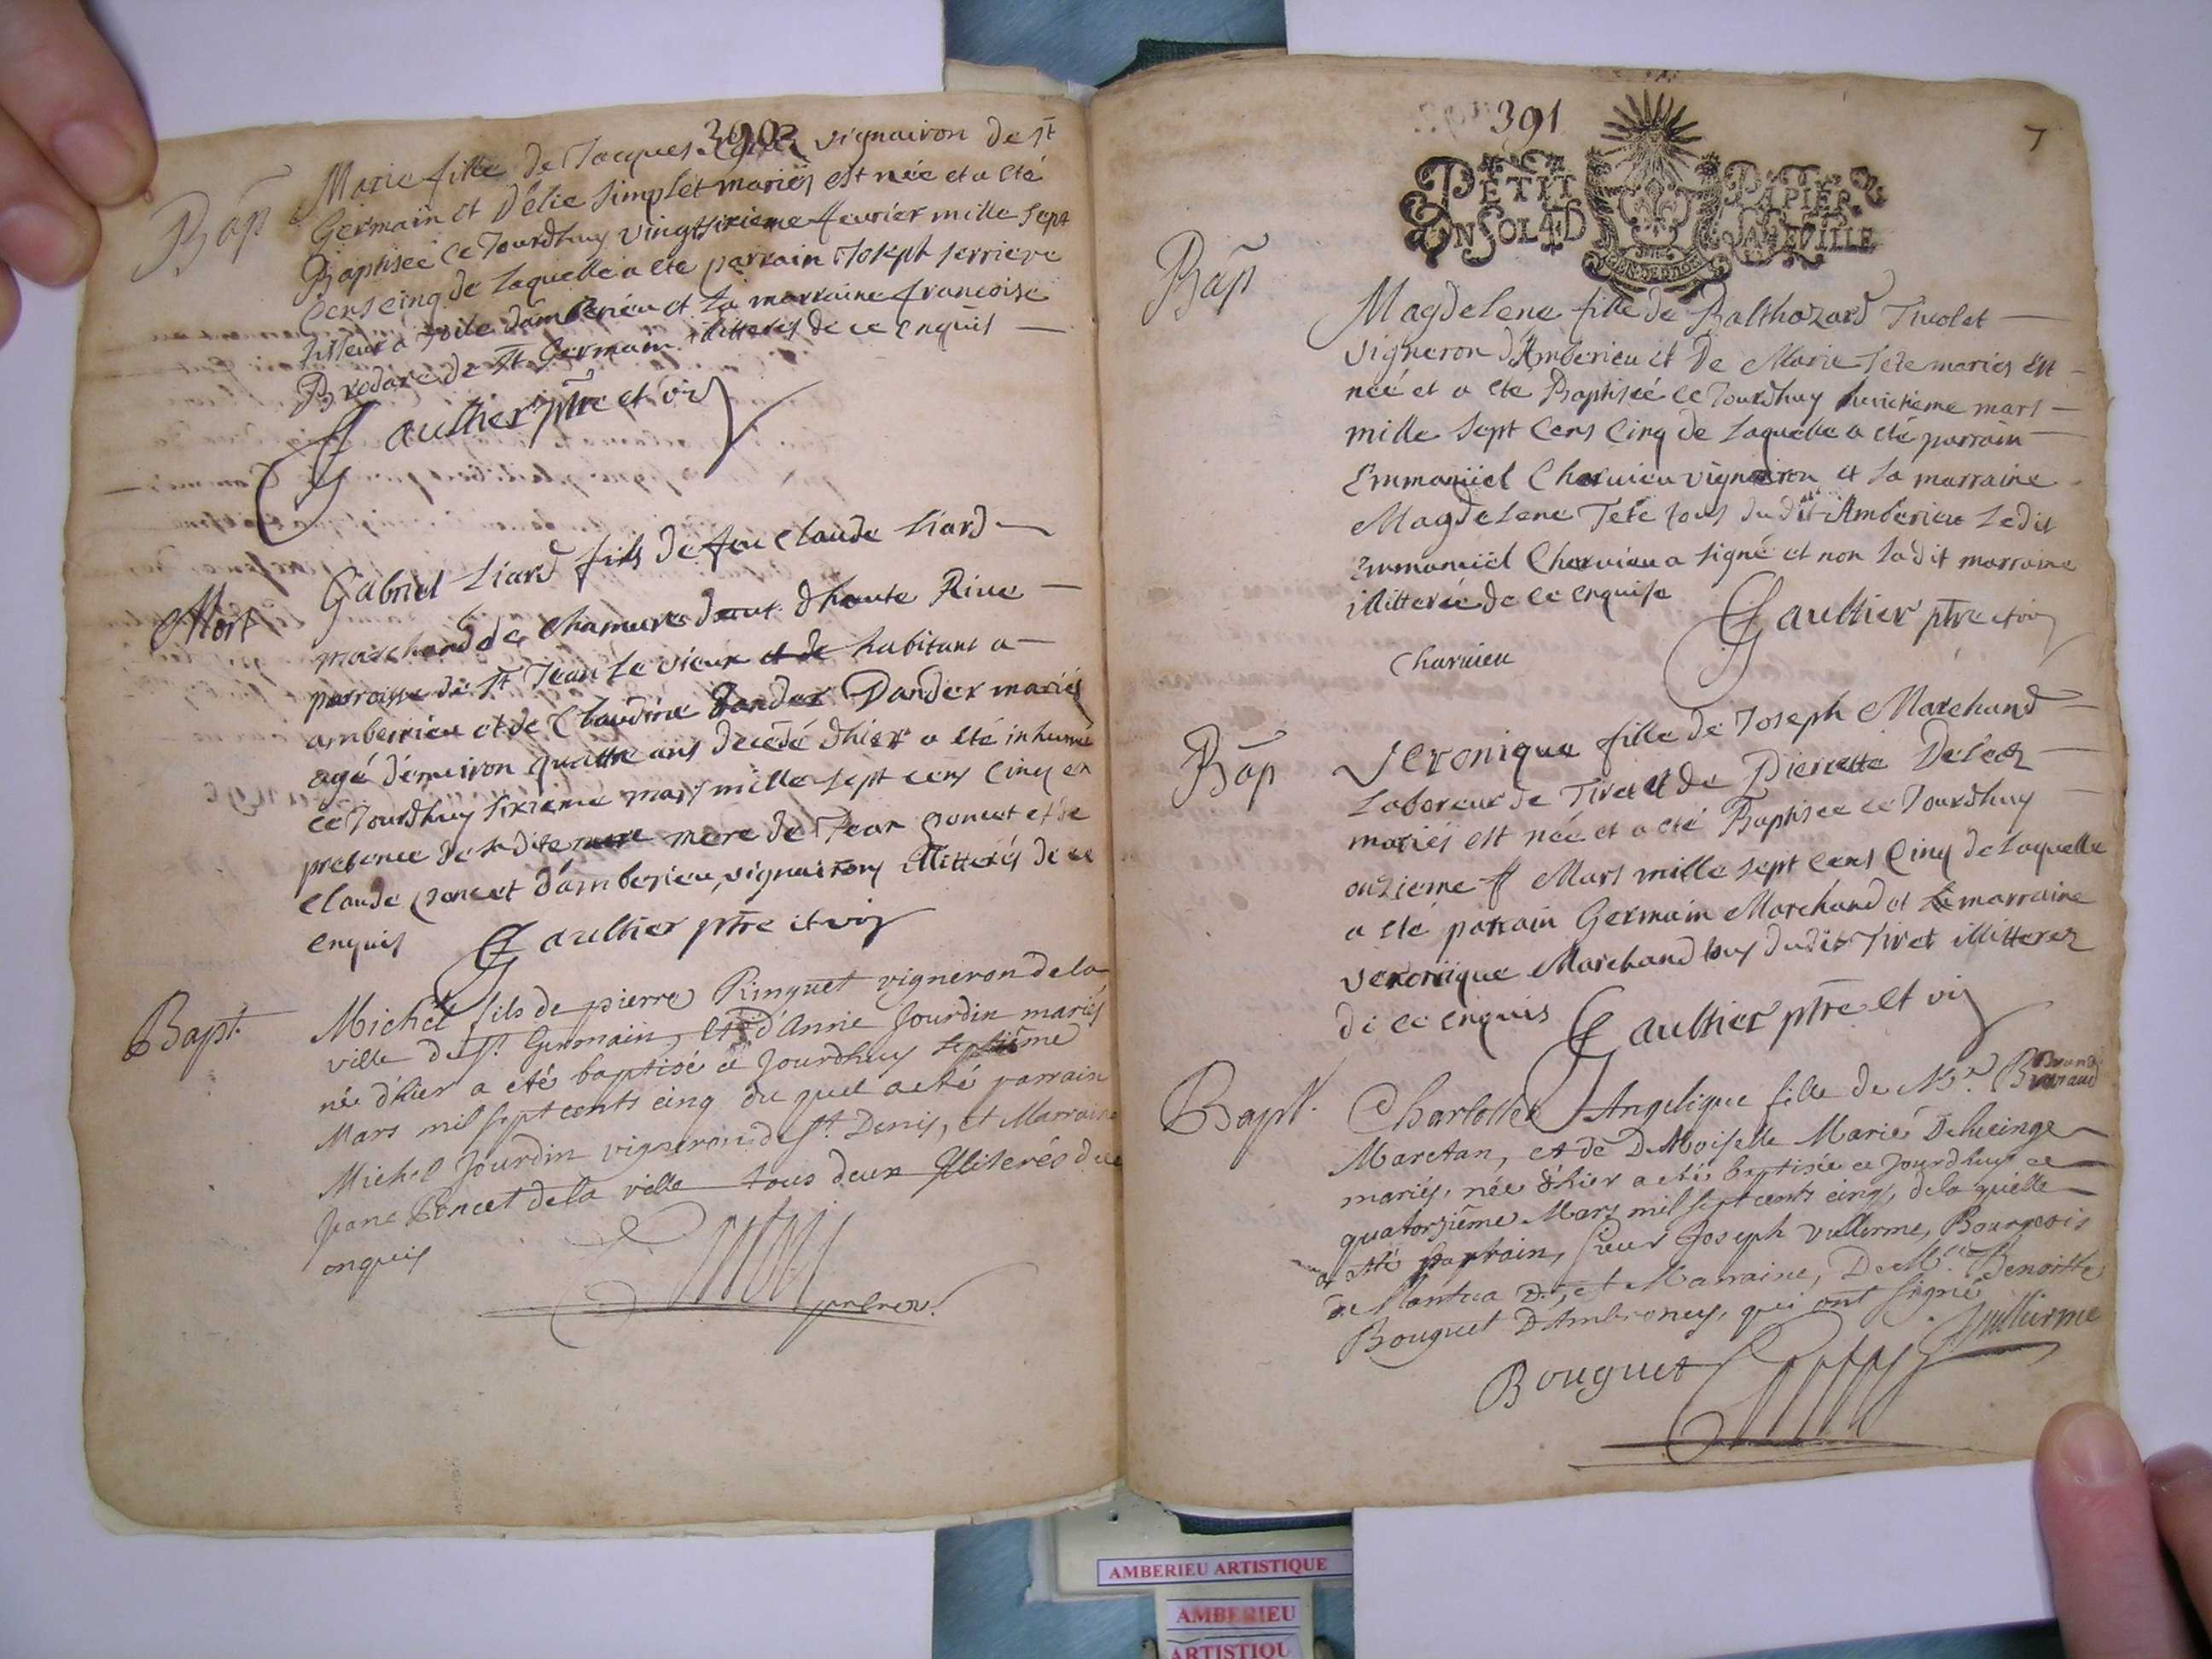 390
Bap
Marie fille de Jacques vignairon de st
Germain et Délie Simplet mariés est née et a eté
Baptisée ce Jourdhuy vingtsixieme feurier mille sept
cens cinq de Laquelle a ete parrain Joseph serriere
tisseur a toile dámberieu et La marraine francoise
Brodare de st Germain illitterés de ce Enquis
Gaultier ptre et vic
Mort
Gabriel Liard fils de feu Claude Liard
marchand de Chamure dhaute Riue
parroisse de st Jean Le vieux et de habitant a
amberieu et de Claudine Dander mariés
agé démuiron quattre ans decédé dhier a eté inhumé
ce Jourdhuy sixieme mars mille sept cens Cinq en
presence de sa dite mere de Jean poncet et de
Claude poncet dámberieu, vignairons illitterés de ce
enquis Gaultier ptre et vic
Bapt.
Michel fils de pierre Ringuet vigneron de la
ville de st. Germain, et d'Anne Jourdin mariés
né d'hier a eté baptisé ce jourdhuy septiême
Mars mil sept cents cinq du quel a eté parrain
Michel Jourdin vigneron de st. Denis, et Marraine
Jeane Poncet de la ville tous deux Illiterés de ce
enquis
391
7
PETIT PAPIER
UN SOL 4 D LA FEUILLE
Bap
Magdelene fille de Balthazard Tucolet
vigneron d'Amberieu et De Marie Tete mariés Est
neé et a ete Baptiseé ce Jourdhuy huictieme mars
mille sept Cens Cinq de Laquelle a eté parrain
Emmanüel Charuieu vignairon et La marraine
Magdelene Tete tous dudit Amberieu Ledit
Emmanuël Charuieu a signé et non Ladit marraine
illitterée de ce enquise
Gaultier ptre et vic
Charuieu
Bap
Veronique fille de Joseph Marchand
Laboreur de Tiret et de Pierrette
mariés est née et a eté Baptisee ce Jourdhuy
onzieme Mars mille sept Cens Cinq de Laquelle
a eté parrain Germain Marchand et La marraine
veronique Marchand tous dudit Tiret illitterez
de ce enquis Gaultier ptre et vic
Bapt.
Charlotte Angelique fille de Mr. Brunaud
Maretan, et de DeMoiselle Marie Delucinge
mariés, née d'hier a eté baptisée ce jourdhuy ce
quatorziême Mars mil sept cents cinq, de la quelle
a eté parrain, sieur Joseph Vullerme, Bourgeois
de Nantua et Marraine, DeMlle Benoitte
Bouguet D'Ambronay, qui ont signé
Vullierme
Bouguet
AMBERIEU ARTISTIQUE
AMBERIEU
ARTISTIQU